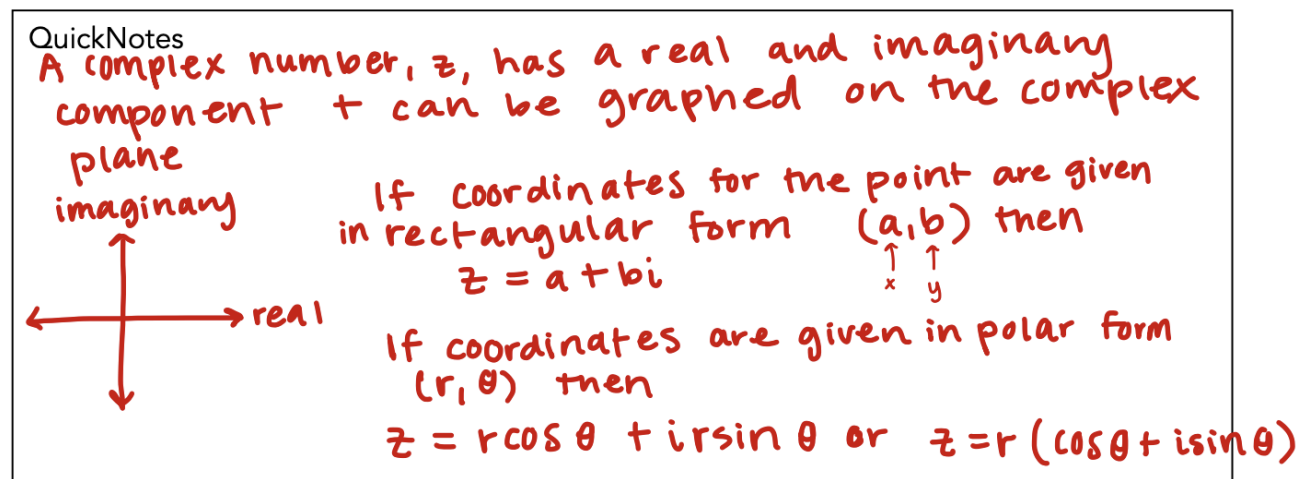 QuickNotes
A complex number, z, has a real and imaginary
component + can be graphed on the complex
plane
imaginary
real
If coordinates for the point are given
in rectangular form (a,b) then
x y
z = a + bi
If coordinates are given in polar form
(r, θ) then
z = r cos θ + i r sin θ or z = r (cos θ + i sin θ)